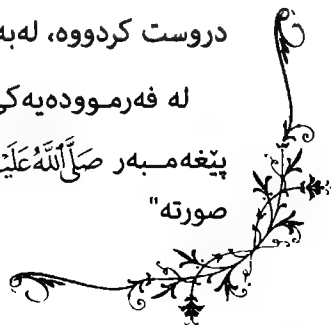 دروست کردووە، لەبە
لە فەرمـوودەیەکی
پێغەمـبەر صَلَّى اللَّهُ عَلَيْ
صورتە"